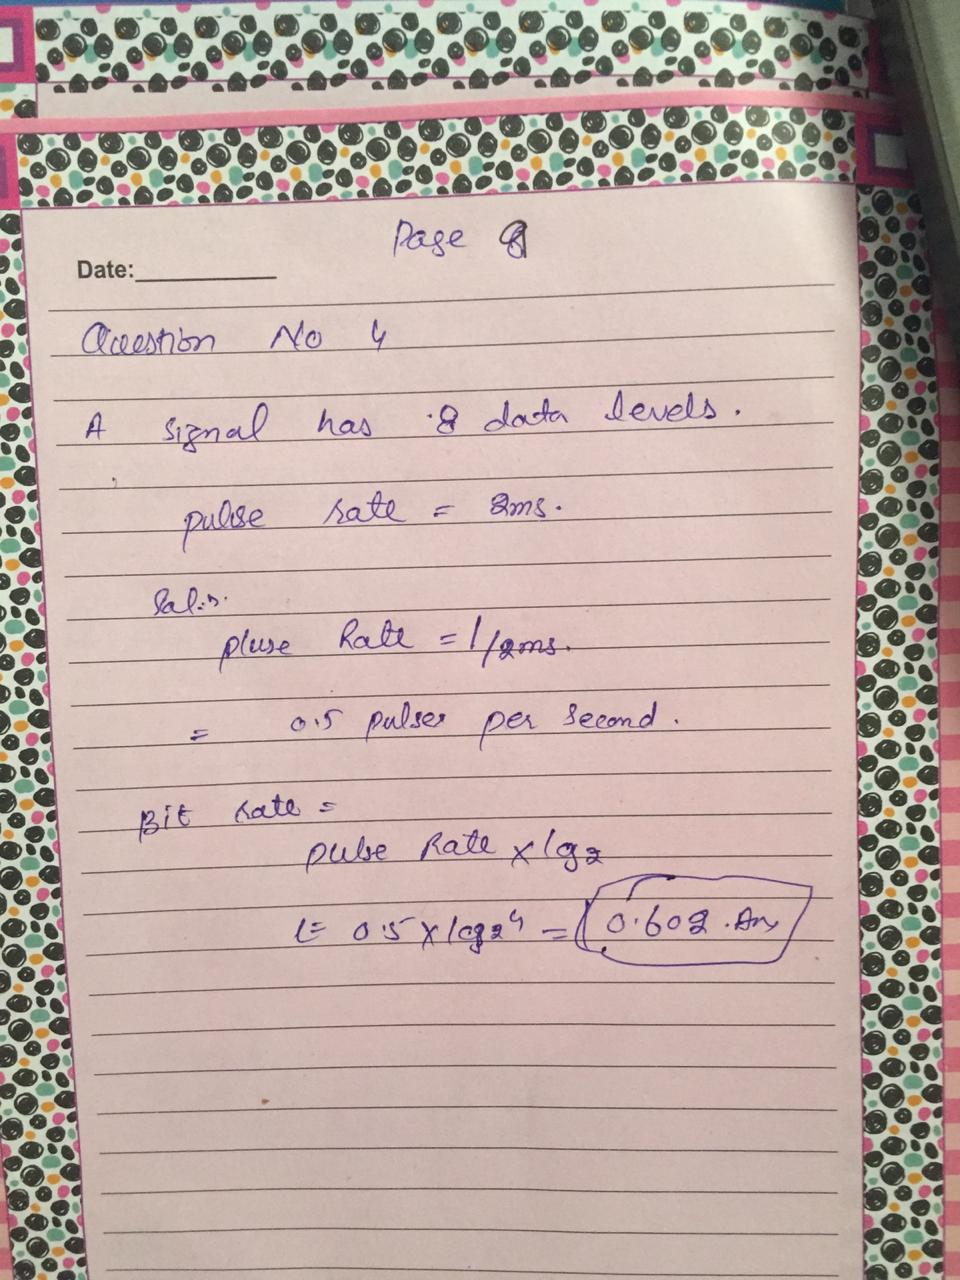 Page 8
Date:
Question No 4
A signal has 8 data levels.
pulse rate = 2ms.
pluse Rate = 1/2ms.
= 0.5 pulses per second.
Bit rate =
pulse Rate x log2
= 0.5 x log2 4 = 0.602 . Ans